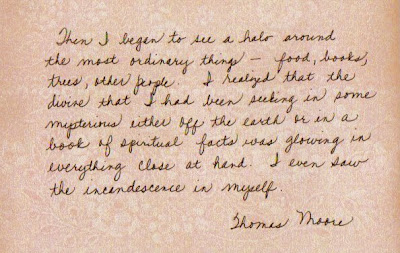 Then I began to see a halo around
the most ordinary things — food, books,
trees, other people. I realized that the
divine that I had been seeking in some
mysterious either off the earth or in a
book of spiritual facts was glowing in
everything close at hand. I even saw
the incandescence in myself.
Thomas Moore